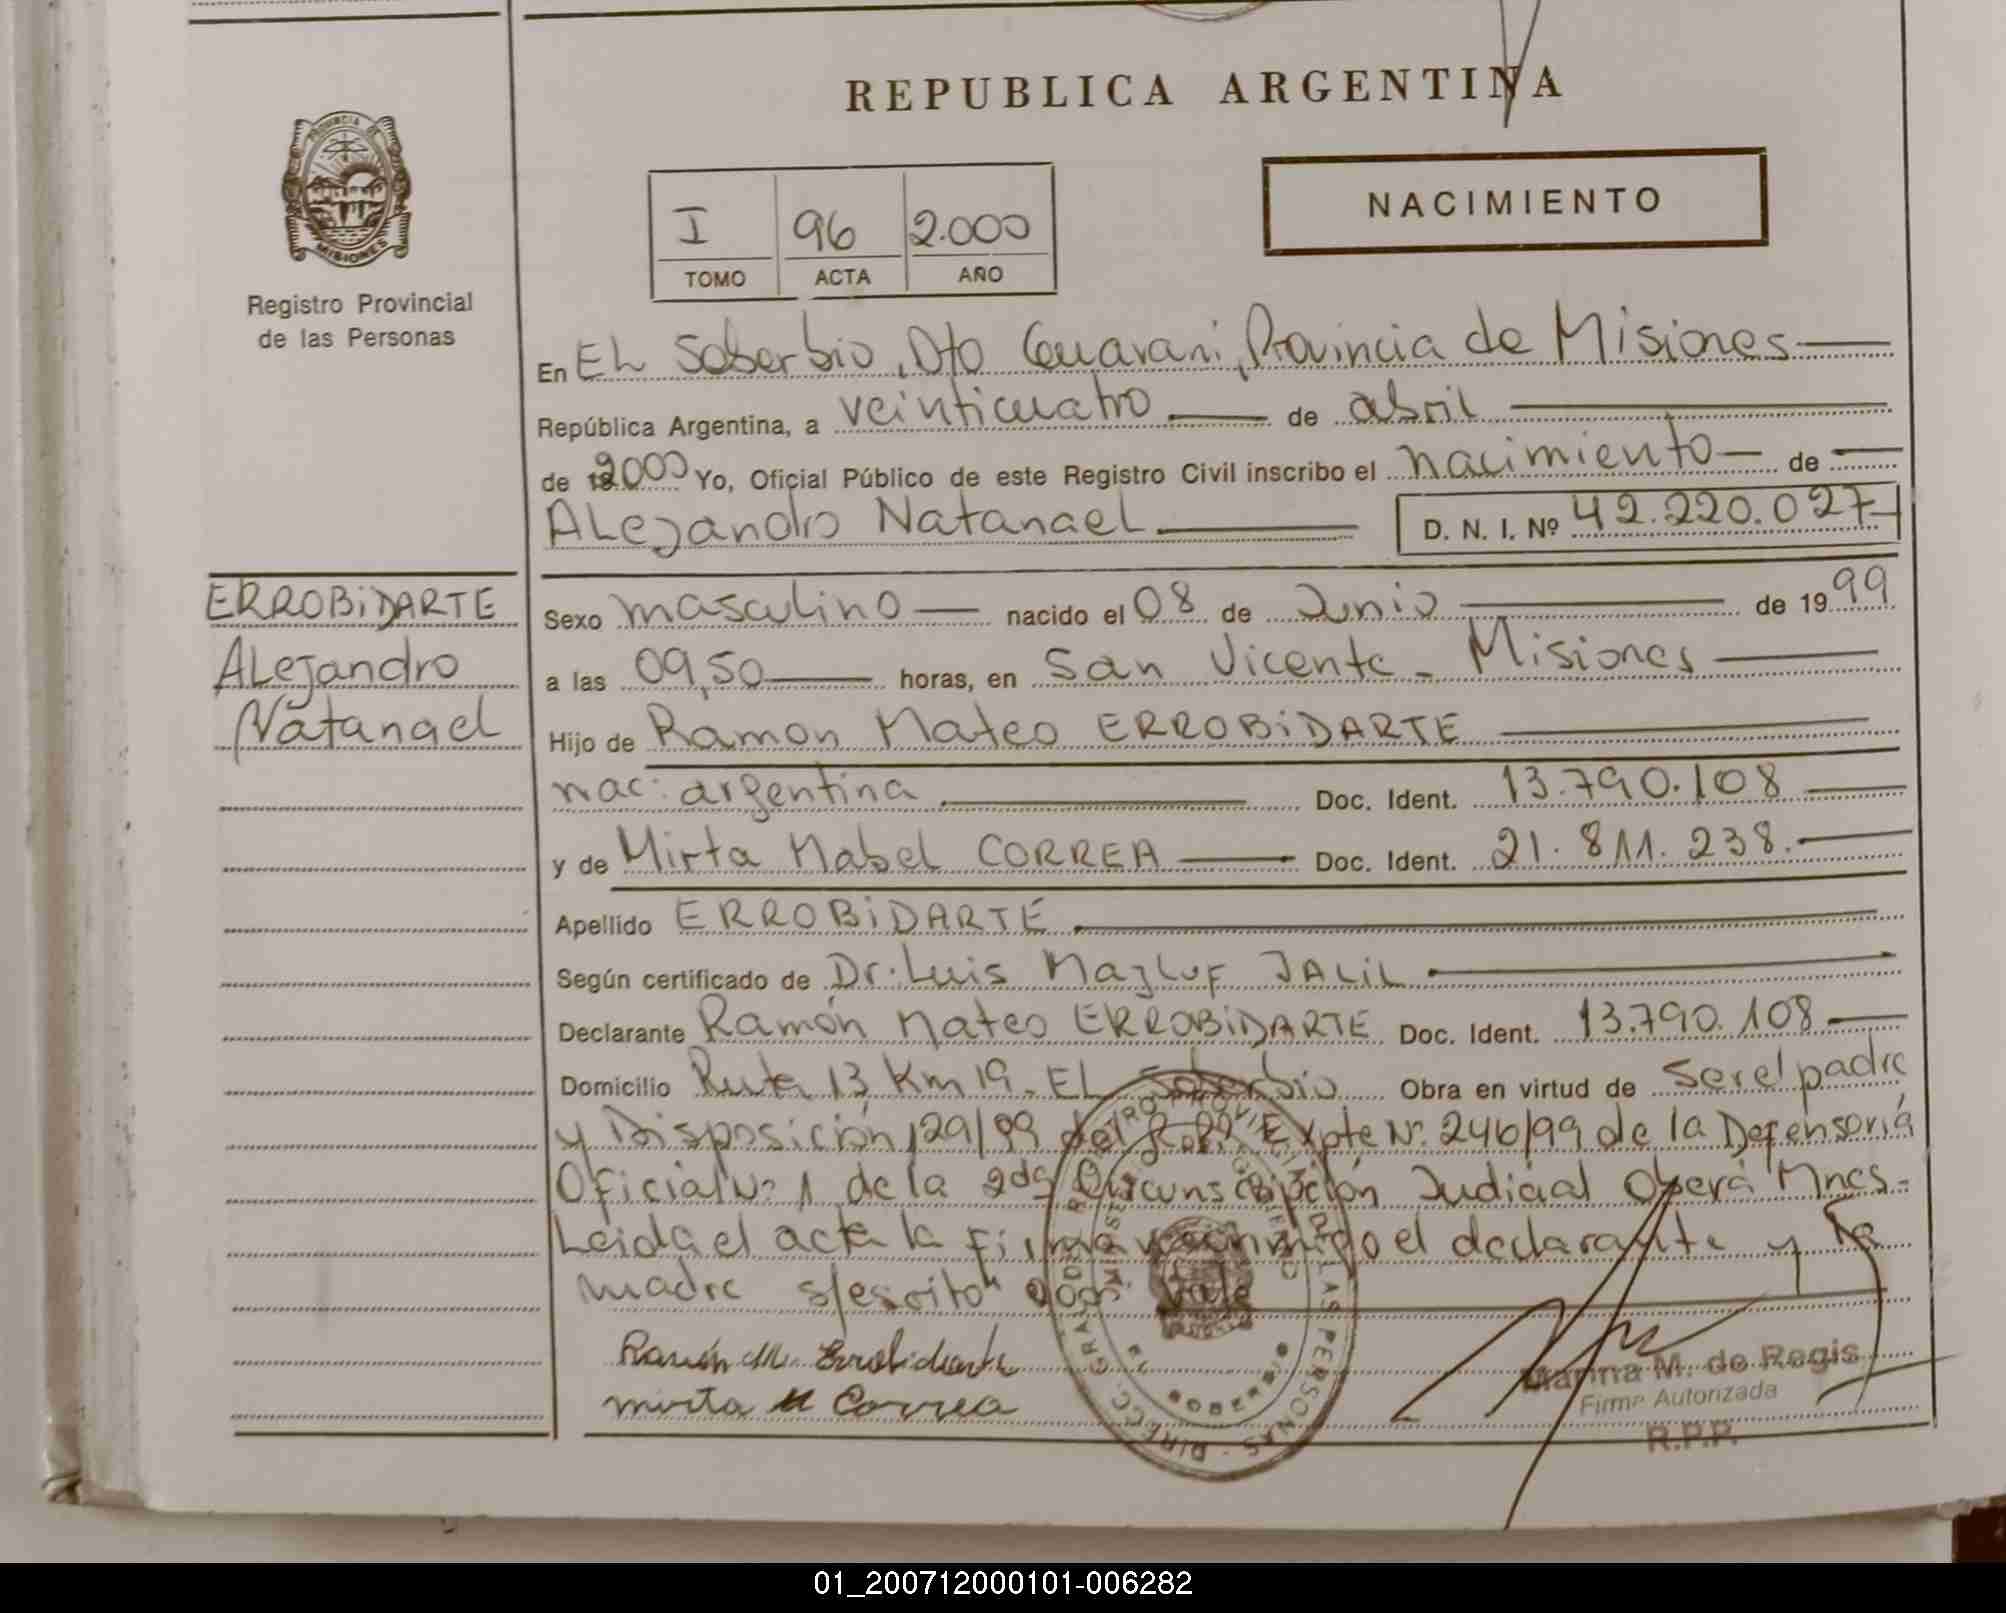 REPUBLICA ARGENTINA
PROVINCIA DE MISIONES
Registro Provincial
de las Personas
NACIMIENTO
I 96 2.000
TOMO ACTA AÑO
En EL Soberbio, Dto Guarani, Provincia de Misiones
República Argentina, a veinticuatro de abril
de 2000 Yo, Oficial Público de este Registro Civil inscribo el nacimiento de
ALejandro Natanael D. N. I. Nº 42.220.027
ERROBiDARTE
ALejandro
Natanael
Sexo masculino nacido el 08 de Junio de 1999
a las 09,50 horas, en San Vicente - Misiones
Hijo de Ramon Mateo ERROBiDARTE
nac: argentina Doc. Ident. 13.790.108
y de Mirta Mabel CORREA Doc. Ident. 21.811.238.
Apellido ERROBiDARTE
Según certificado de Dr. Luis Mazluf JALiL
Declarante Ramón Mateo ERROBiDARTE Doc. Ident. 13.790.108
Domicilio Ruta 13 Km 19 - EL Soberbio Obra en virtud de ser el padre
y Disposición 129/99 del R.P.P. Expte Nº 246/99 de la Defensoria
Oficial Nº 1 de la 2da Circunscripción Judicial Oberá Mnes.
Leida el acta la firma conmigo el declarante y la
madre s/escrito 2000 Vale
Ramón M. Errobidarte
mirta M Correa
Marina M. de Regis
Firma Autorizada
R.P.P.
01_200712000101-006282